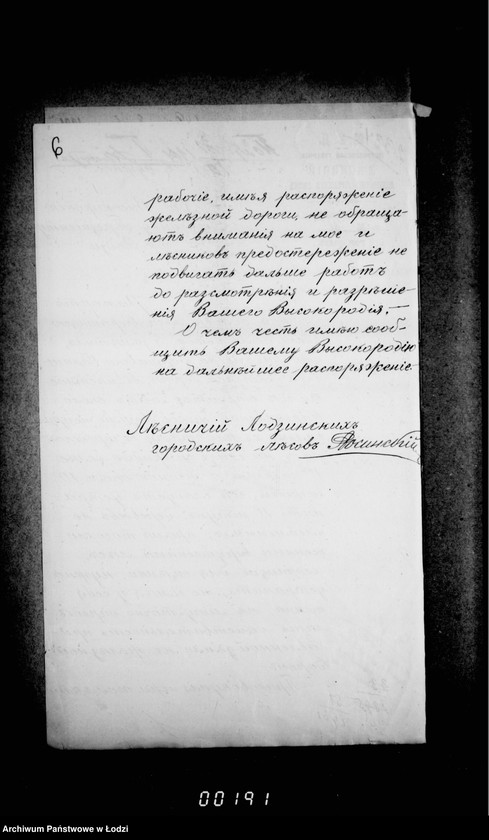 6
рабочіе, имѣя распоряженіе
желѣзной дороги, не обраща-
ютъ вниманія на мое и
лѣсниковъ предостереженіе не
подвигать дальше работъ
до разсмотрѣнія и разрѣше-
нія Вашего Высокородія.—
О чемъ честь имѣю сооб-
щить Вашему Высокородію
на дальнѣйшее распоряженіе
Лѣсничій Лодзинскихъ
городскихъ лѣсовъ
00191
Archiwum Państwowe w Łodzi